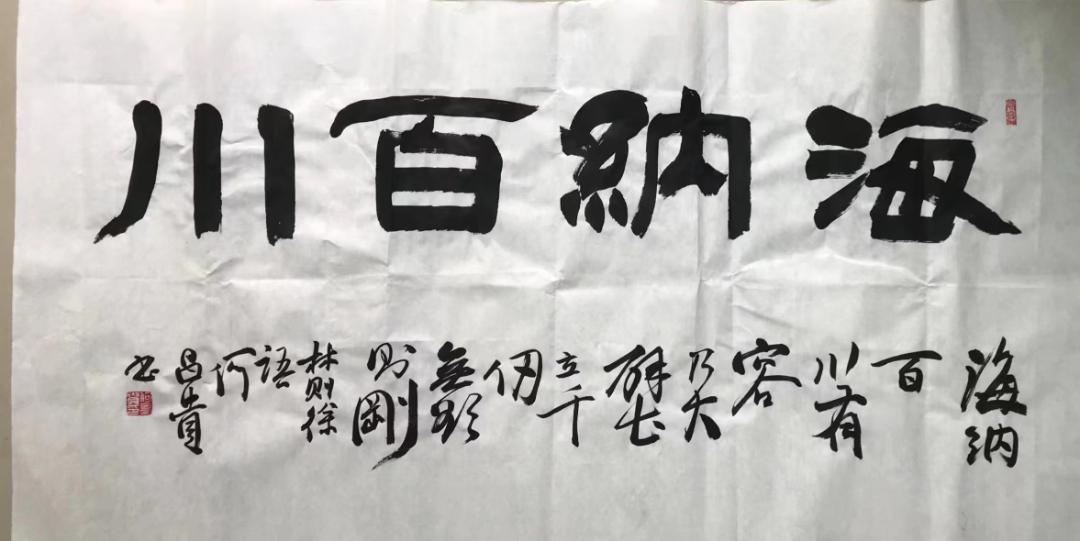 海納百川
海纳
百
川有
容
乃大
壁
立千
仞
無欲
則剛
林则徐
语
何
昌貴
书